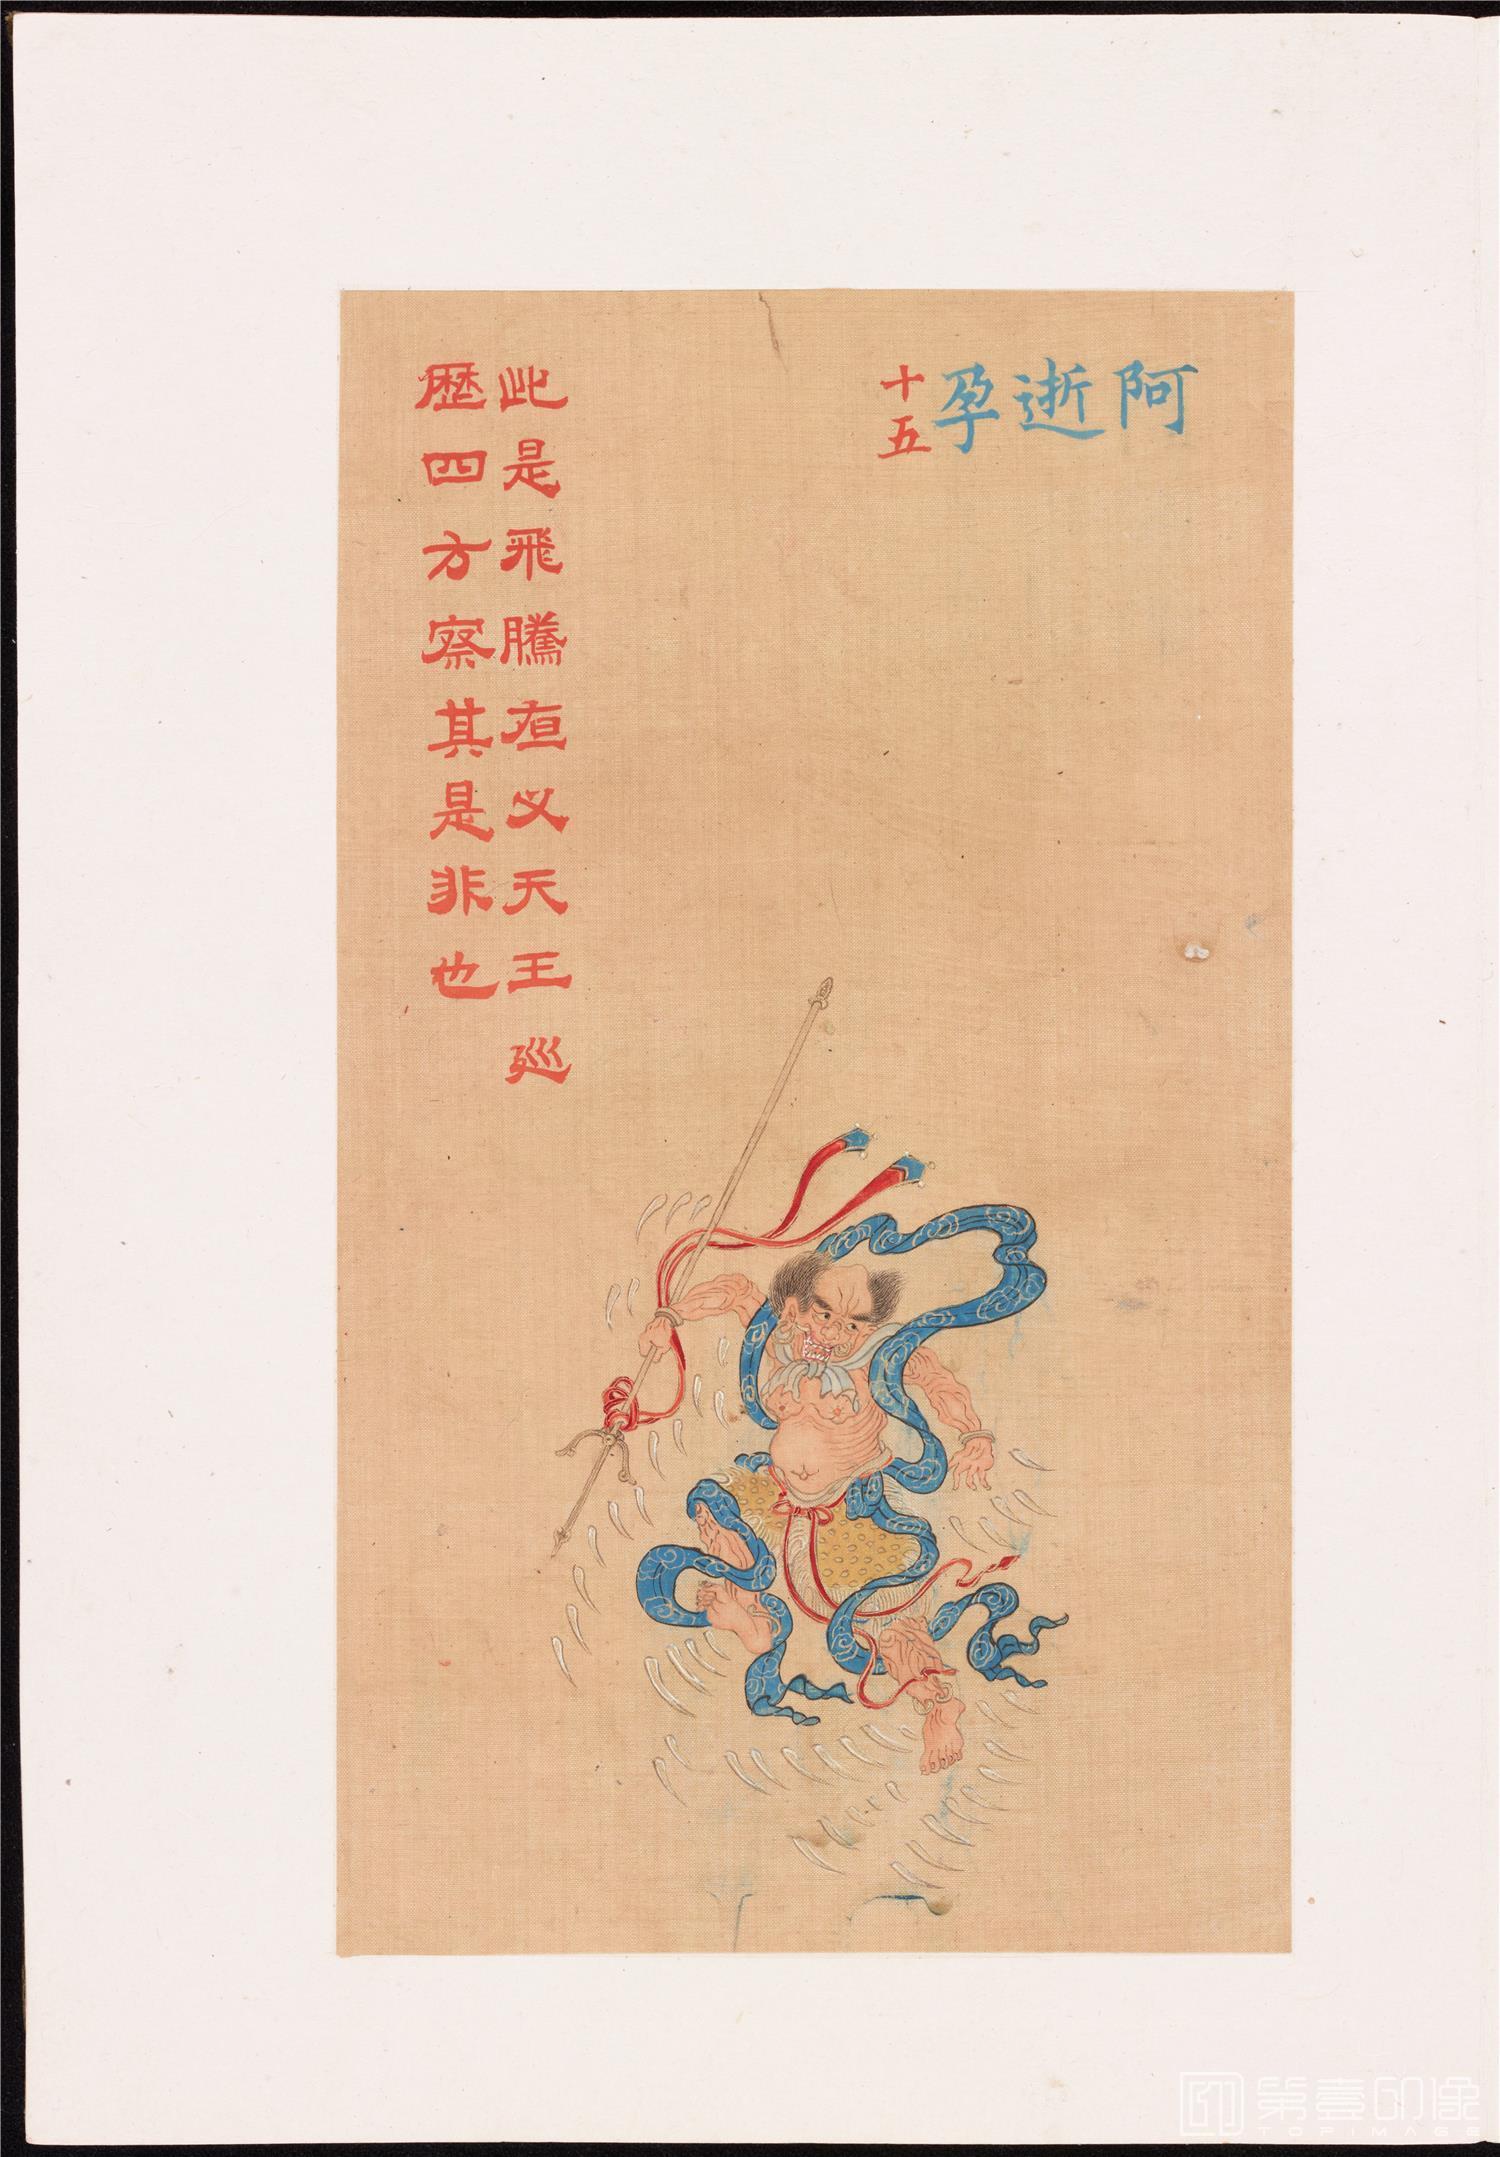 阿逝孕
十五
此是飛騰亱义天王廵
歴四方察其是非也
第壹印像
TOPIMAGE